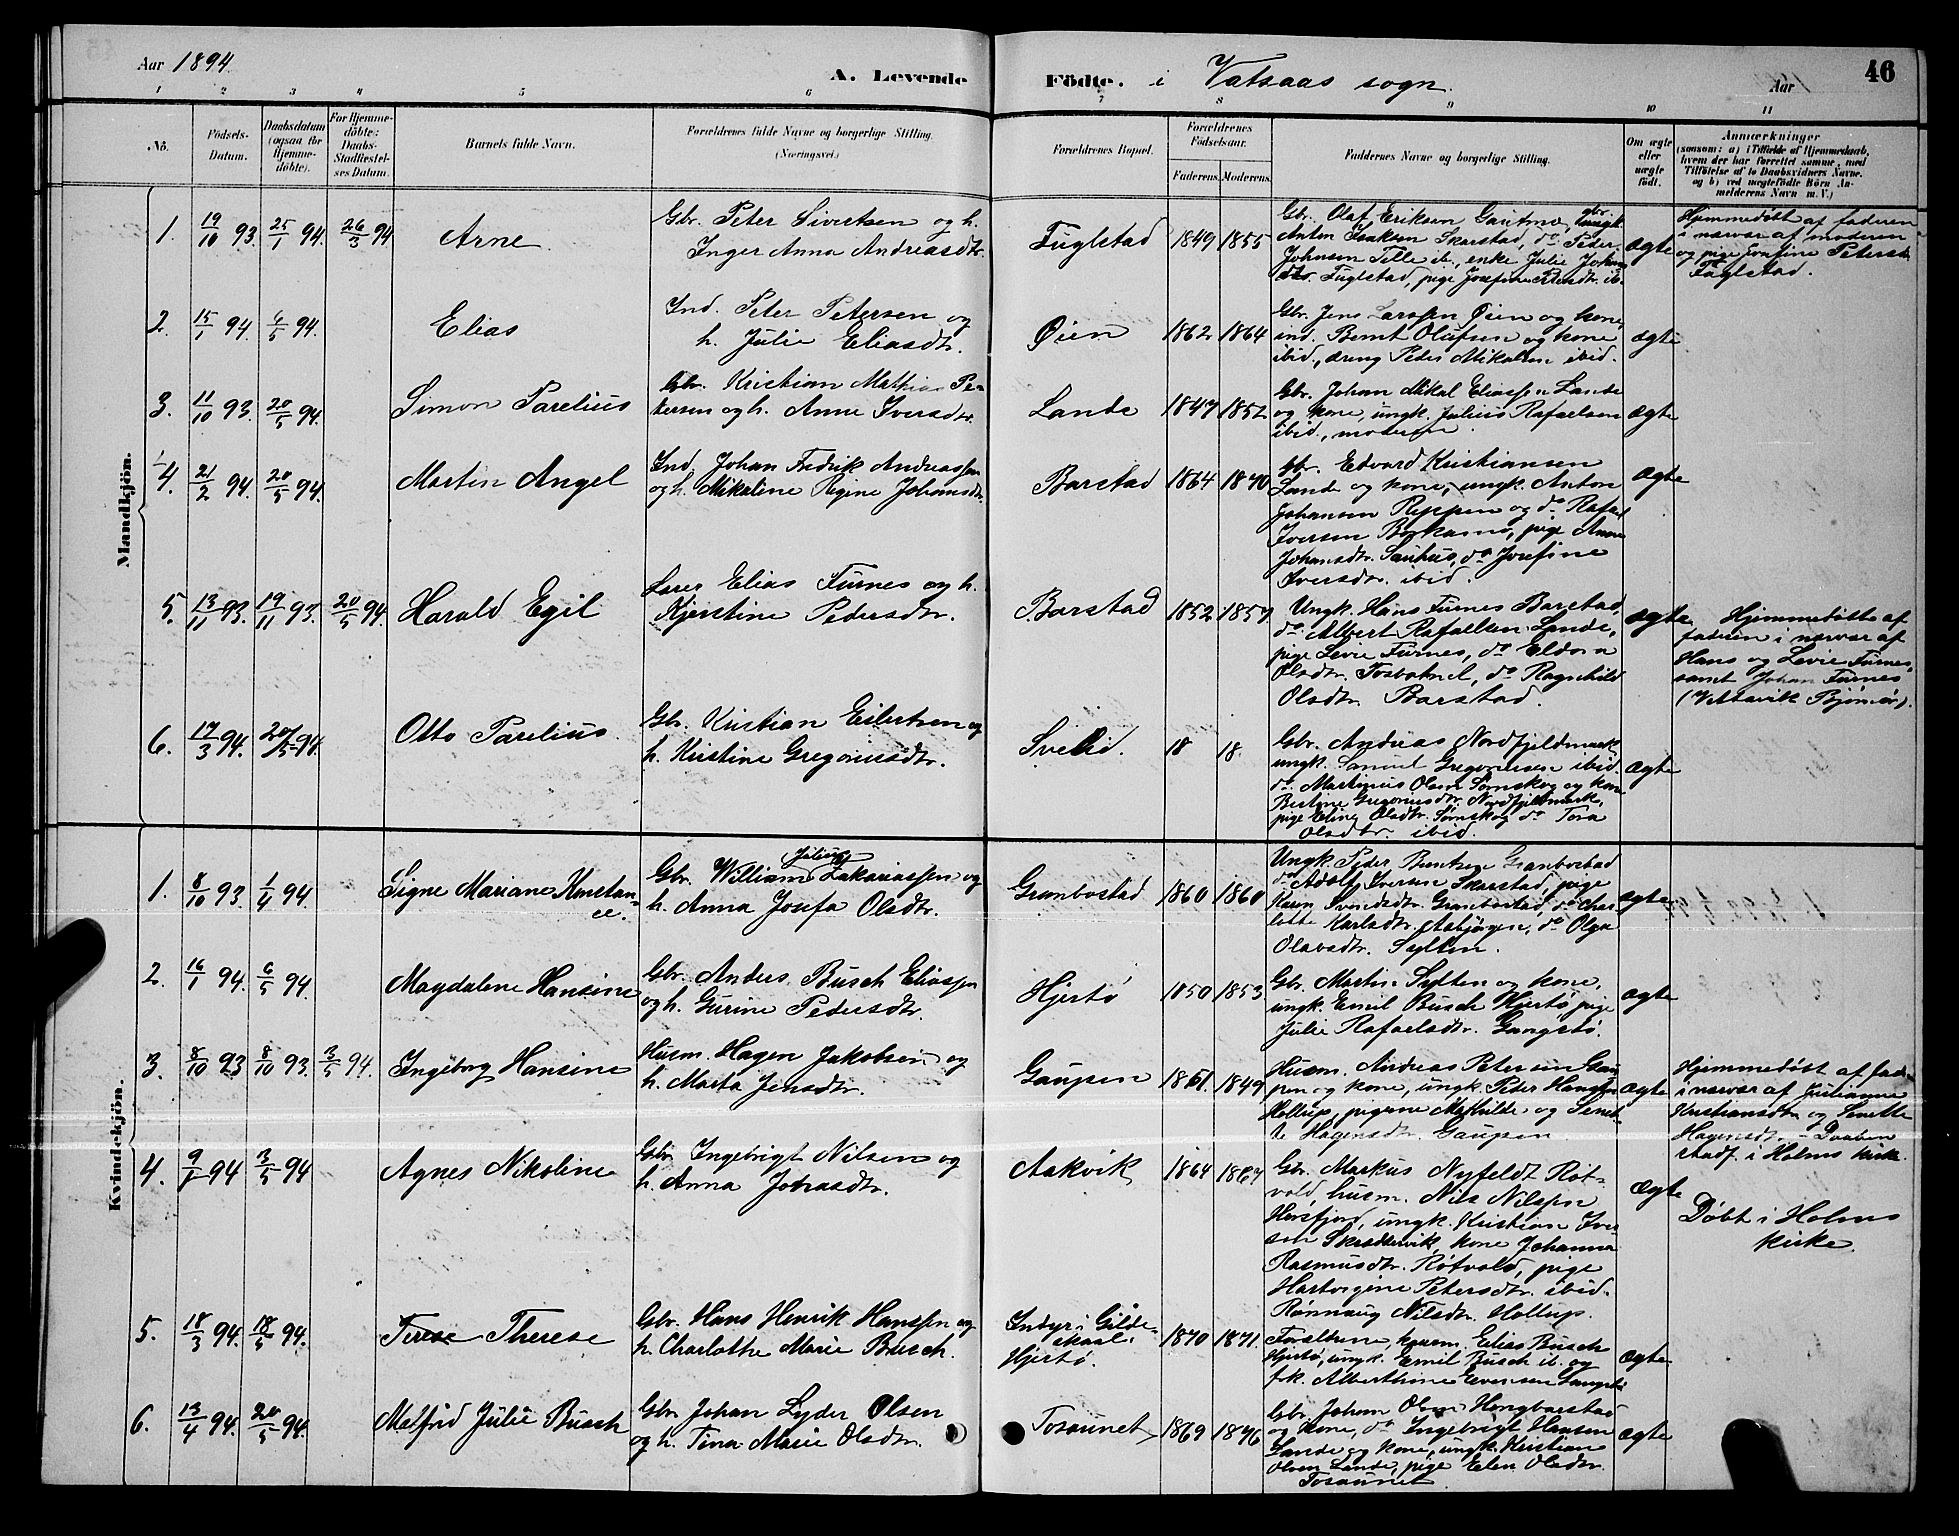 Aar 1894.
A. Levende Födte. i Vatsaas sogn.
Aar
46
1 2 3 4 5 6 7 8 9 10 11
No.
Födsels-Datum.
Daabsdatum (ogsaa for Hjemmedöbte).
For Hjemmedöbte: Daabs-Stadfæstelses Datum.
Barnets fulde Navn.
Forældrenes fulde Navne og borgerlige Stilling. (Næringsvei.)
Forældrenes Bopæl.
Forældrenes Födselsaar.
Faderens. Moderens.
Faddernes Navne og borgerlige Stilling.
Om ægte eller uægte födt.
Anmærkninger
(saasom: a) i Tilfælde af Hjemmedaab, hvem der har forrettet samme, med Tilföielse af to Daabsvidners Navne, og b) ved uægtefödte Börn Anmelderens Navn m. V.)
Mandkjön.
1. 19/10 93. 25/1 94. 26/3 94 Arne
Gbr. Peter Sivertsen og h.
Inger Anna Andreasdtr.
Fuglstad 1849 1855
Gbr. Olaf Eriksen Gautmo, gbr.
Anton Isaksen Skarstad, do Peder
Johnsen Tille ib., enke Julie
Fuglstad, pige Josefine ib.
ægte
Hjemmedøbt af faderen
i nærvær af moderen
og pige Josefine Petersd.
Fuglstad.
2. 15/1 94. 6/5 94. Elias
Ind. Peter Petersen og
h. Julie Eliasdtr.
Øien 1862 1864
Gbr. Jens Larssen Øien og kone,
ind. Bernt Olufsen og kone
ibid., dreng Peder Mikalsen ibid.
ægte
3. 11/10 93. 20/5 94. Simon Parelius
Gbr. Kristian Mathias Pe-
tersen og h. Anne Iversdtr.
Lande 1847 1852
Gbr. Johan Mikal Eliassen Lande
og kone, ungk. Julius Rafaelsen
ibid., moderen.
ægte
4. 21/2 94. 20/5 94. Morten Angel
Ind. Johan Fredrik Andreassen
og h. Mikaline Regine Johansdtr.
Barstad 1864 1870
Gbr. Edvard Kristiansen
Lande og kone, ungk. Anton
Johansen Reppen og do Rafael
Iversen Borkamo, pige Anna
Johansdtr. Saus, do Josefine
Iversdtr. ibid.
ægte
5. 13/11 93. 19/11 93. 20/5 94. Harald Egil
Lærer Elias Furnes og h.
Kjerstine Pedersdtr.
Barstad 1852 1857
Ungk. Hans Furnes Barstad,
do Albert Rafaelsen Lande,
pige Levie Furnes, do Eldora
Olsdtr. Tosbotnet, do Ragnhild
Olsdtr. Barstad.
ægte
Hjemmedøbte af
faderen i nærvær af
Hans og Levie Furnes,
samt Johan Furnes
(Vikavik Bjørnør).
6. 17/3 94. 20/5 94. Otto Parelius
Gbr. Kristian Eilertsen og
h. Kristine Gregoriusdtr.
Svelid. 18 18
Gbr. Andreas Nordfjeldmark,
ungk. Samuel Gregoriusen ibid.
do Martinius Olsen Sørnskog og kone
Bertine Gregoriusdtr. Nordfjeldmark,
pige Eline Olsdtr. Sørnskog do Tora
Olsdtr. ibid.
ægte
Kvindekjön.
1. 8/10 93. 1/4 94. Signe Mariane Konstan-
ce.
Gbr. William Julius Zakariassen og
h. Anna Josefa Olsdtr.
Granbostad 1860 1860
Ungk. Peder Berntsen Granbostad
do Adolf Iversen Skarstad, pige
Karen Svendsdtr. Granbostad, do Char-
lotte Karlsdtr. Aabjørgen, do Olga
Olavsdtr. Sylten.
ægte
2. 16/1 94. 6/5 94. Magdalene Hansine
Gbr. Anders Busch Eliassen
og h. Gurine Pedersdtr.
Hjertø 1850 1853
Gbr. Martin Sylten og kone,
ungk. Emil Busch Hjertø, pige
Julie Rafaelsdtr. Gangstø.
ægte
3. 8/10 93 8/10 93. 3/5 94. Ingeborg Hansine
Husm. Hagen Jakobsen og
h. Marta Jensdtr.
Gaupen 1851. 1849
Husm. Andreas Petersen Gau-
pen og kone, ungk. Peter Hanssen
Hollup, pigerne Mathilde og Senet-
te Hagensdtr. Gaupen.
ægte
Hjemmedøbt af fader
i nærvær af Julianne
Kristiansdtr. og Senette
Hagensdtr. – Daaben
stadf. i Holms kirke.
4. 9/1 94 3/5 94. Agnes Nikoline
Gbr. Ingebrigt Nilsen og
h. Anna Johasdtr.
Aakvik 1864 1867
Gbr. Markus Nyfeldt Røt-
vold, husm. Nils Nilssen
Horsfjord, ungk. Kristian Iver-
sen Skreddervik, kone Johanna
Rasmusdtr. Røtvold, pige
Hartvigine Petersdtr. ibid.
Rønnaug Nilsdtr. Hollup.
ægte
Døbt i Holms
kirke.
5. 18/3 94. 18/5 94. Terese Therese
Gbr. Hans Henrik Hanssen og
h. Charlotte Marie Busch.
Indyr i Gilde-
skaal.
Hjertø.
1870 1871.
Forældrene, kaarm. Elias Busch
Hjertø, ungk. Emil Busch ib. og
frk. Alberthine Eversen
ægte
6. 13/4 94. 20/5 94. Melfrid Julie Busch
Gbr. Johan Lyder Olsen
og h. Tina Marie Olsdtr.
Tosaunet 1869 1876
Gbr. Johan Olsen Hongbarstad
og kone, do Ingebrigt Hansen
Lande og kone, ungk. Kristian
Olsen Lande, pige Elen Olsdtr.
Tosaunet
ægte